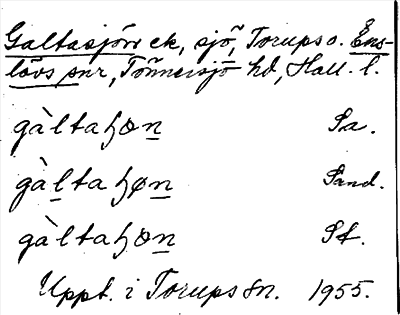 Galtasjöns ek, sjö, Torups o. Ens-
lövs snr, Tönnersjö hd, Hall. l.
gàltaꜧøn Sa.
gàltaꜧøn Sand.
gàltaꜧøn St.
Uppt. i Torups sn. 1955.